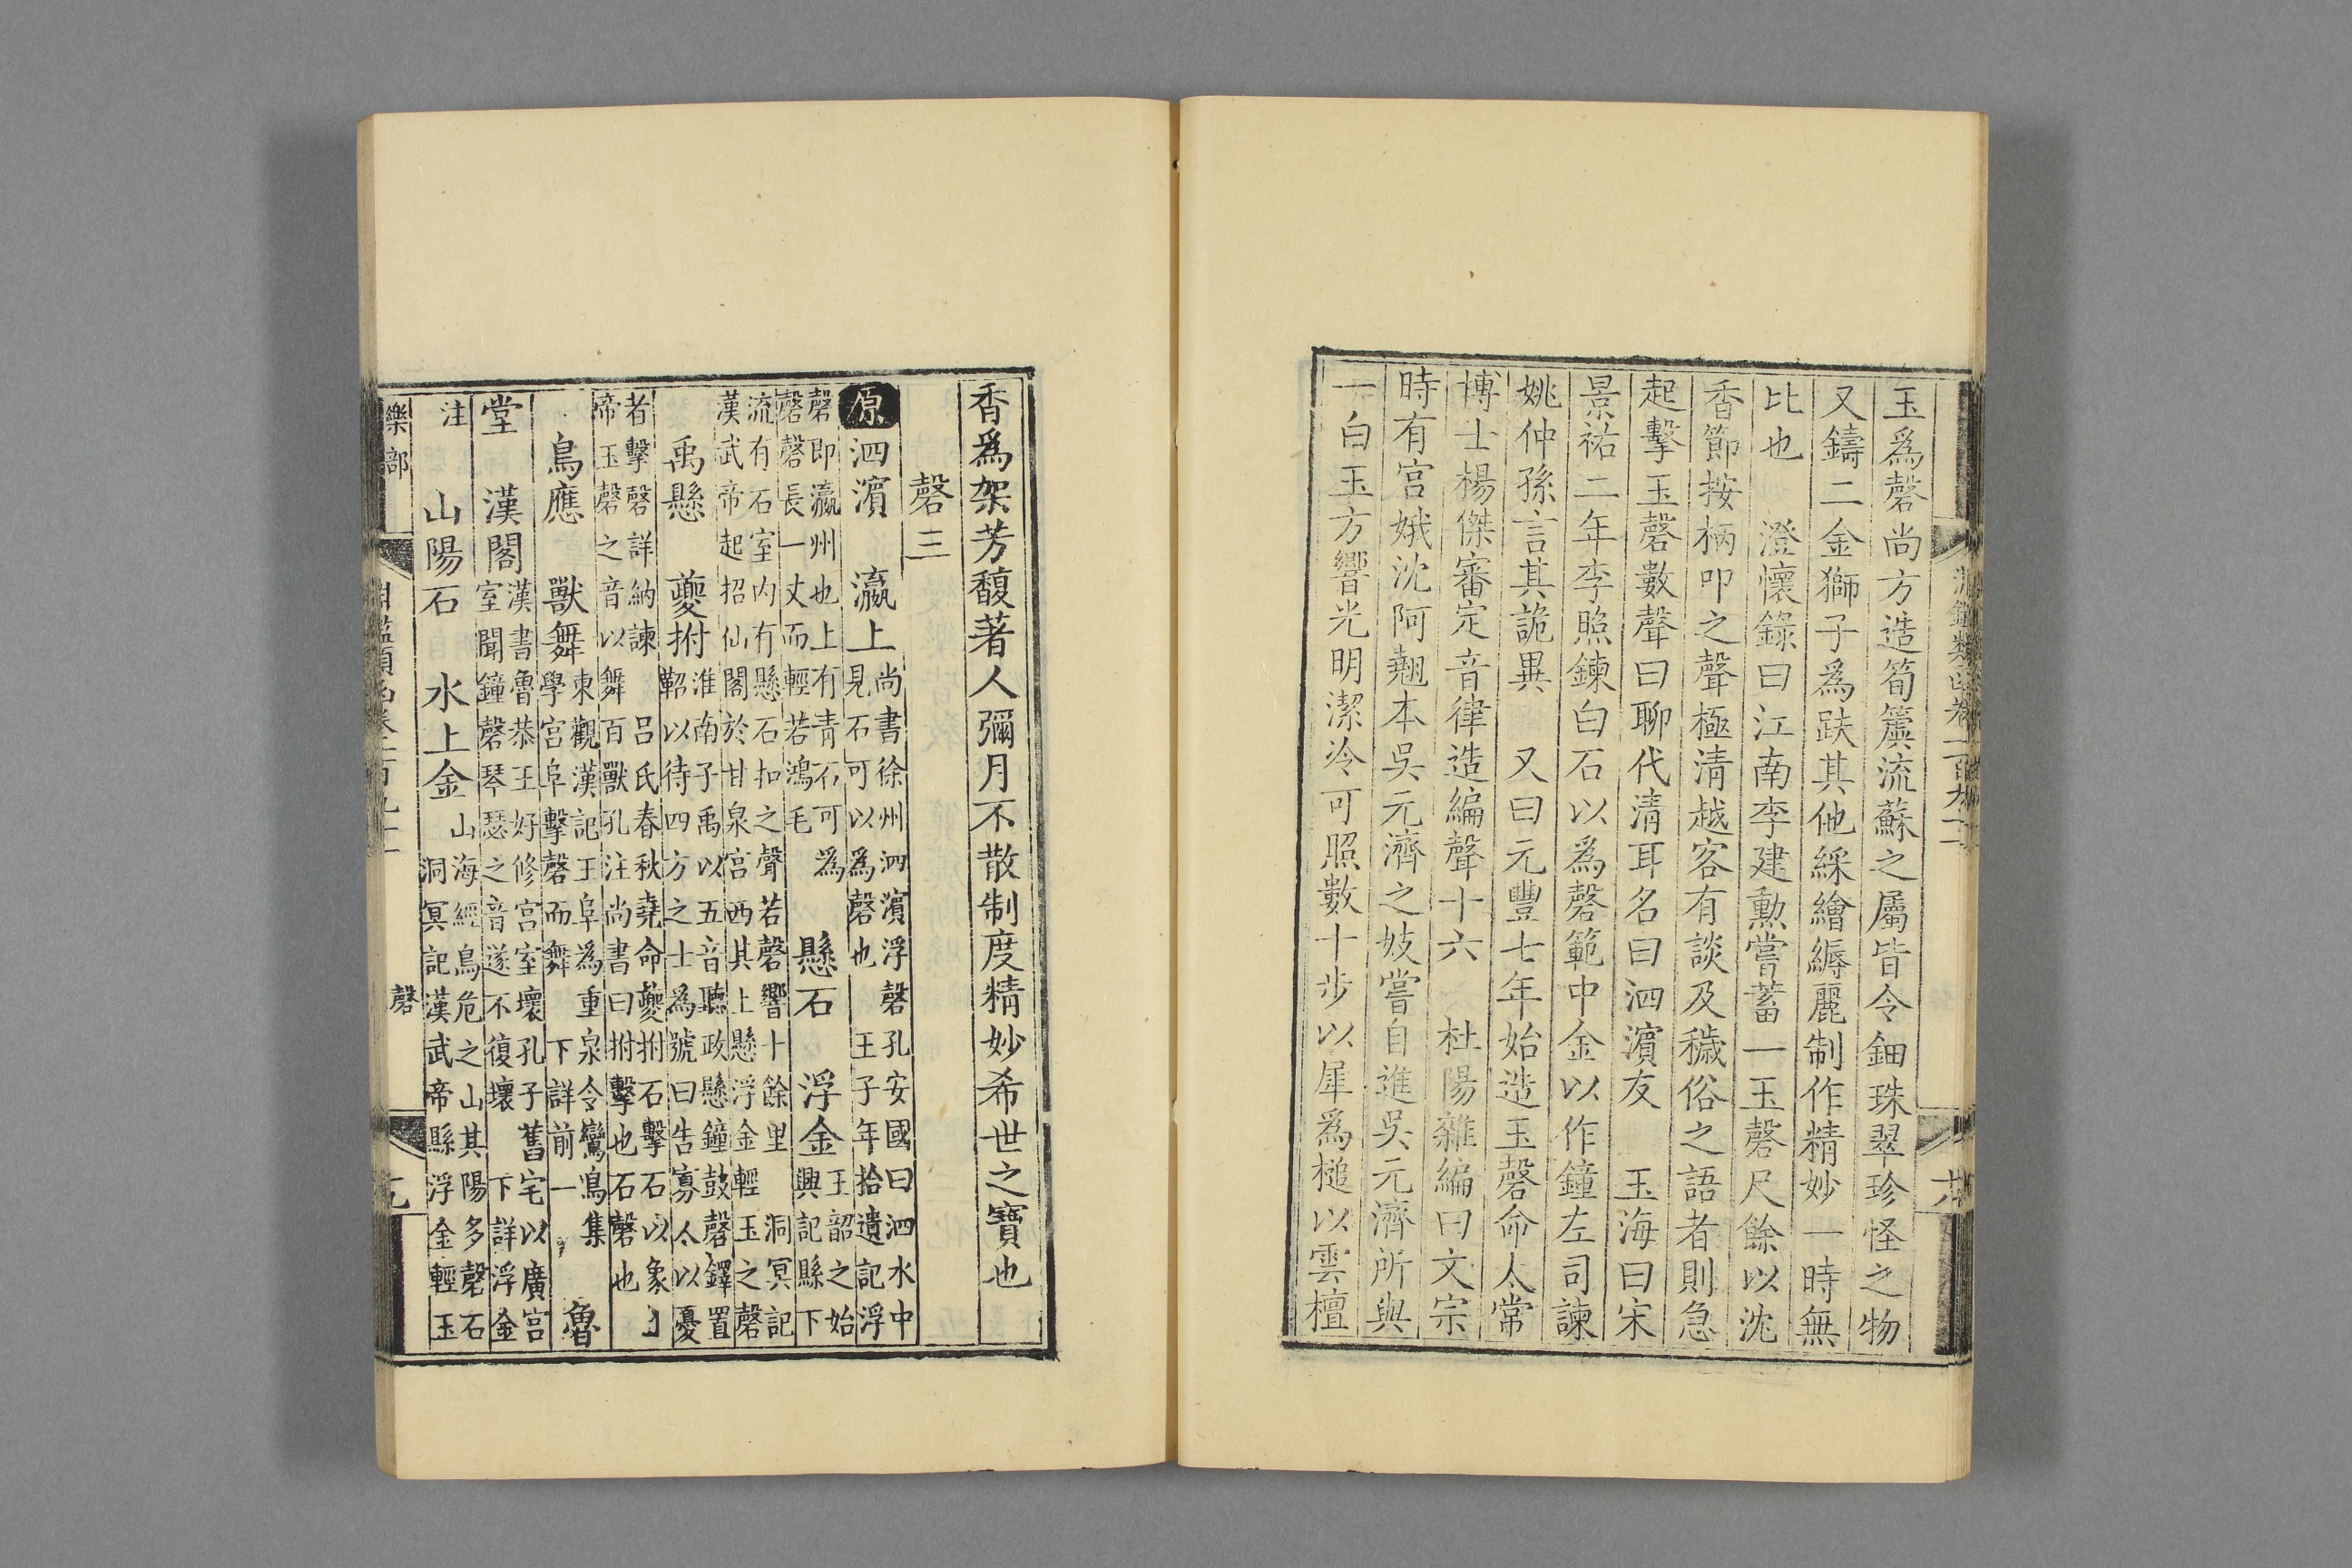 玉為磬尚方造筍簴流蘇之屬皆令鈿珠翠珍怪之物
又鑄二金獅子為趺其他綵繪縟麗制作精妙一時無
比也　澄懷錄曰江南李建勳嘗蓄一玉磬尺餘以沈
香節按柄叩之聲極清越客有談及穢俗之語者則急
起擊玉磬數聲曰聊代清耳名曰泗濱友　玉海曰宋
景祐二年李照鍊白石以為磬範中金以作鐘左司諫
姚仲孫言其詭異　又曰元豐七年始造玉磬命太常
博士楊傑審定音律造編聲十六　杜陽雜編曰文宗
時有宮娥沈阿翹本吳元濟之妓嘗自進吳元濟所與
一白玉方響光明潔冷可照數十步以犀為槌以雲檀
香為架芳馥著人彌月不散制度精妙希世之寶也
磬三
原泗濱　瀛上
尚書徐州泗濱浮磬孔安國曰泗水中
見石可以為磬也　王子年拾遺記浮
磬即瀛州也上有青石可為
磬磬長一丈而輕若鴻毛
懸石　浮金
王韶之始
興記縣下
流有石室內有懸石扣之聲若磬響十餘里　洞冥記
漢武帝起招仙閣於甘泉宮西其上懸浮金輕玉之磬
禹懸　夔拊
淮南子禹以五音聽政懸鐘鼓磬鐸置
鞀以待四方之士為號曰告寡人以憂
者擊磬詳納諫　呂氏春秋堯命夔拊石擊石以象上
帝玉磬之音以舞百獸孔注尚書曰拊擊也石磬也
鳥應　獸舞
東觀漢記王阜為重泉令鸞鳥集
學宮阜擊磬而舞　下詳前一
魯
堂　漢閣
漢書魯恭王好修宮室壞孔子舊宅以廣宮
室聞鐘磬琴瑟之音遂不復壞　下詳浮金
注
山陽石　水上金
山海經鳥危之山其陽多磬石
洞冥記漢武帝縣浮金輕玉
樂部
磬